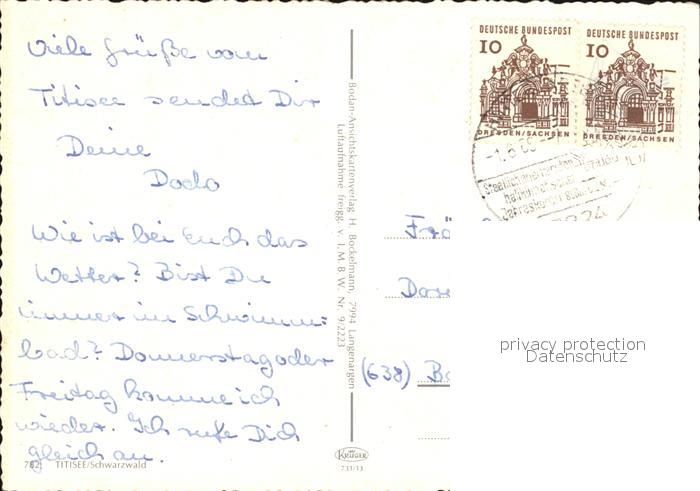 Viele Grüße vom
Titisee sendet Dir
Deine
Dodo
Wie ist bei Euch das
Wetter? Bist Du
immer im Schwimm=
bad? Donnerstag oder
Freitag komme ich
wieder. Ich rufe Dich
gleich an.
782 TITISEE/Schwarzwald
Bodan-Ansichtskartenverlag H. Bockelmann, 7994 Langenargen
Luftaufnahme freigg. v. I. M. B. W. Nr. 9/2223
KRÜGER
731/13
DEUTSCHE BUNDESPOST
10
DRESDEN/SACHSEN
DEUTSCHE BUNDESPOST
10
DRESDEN/SACHSEN
Frä
(638) B
privacy protection
Datenschutz